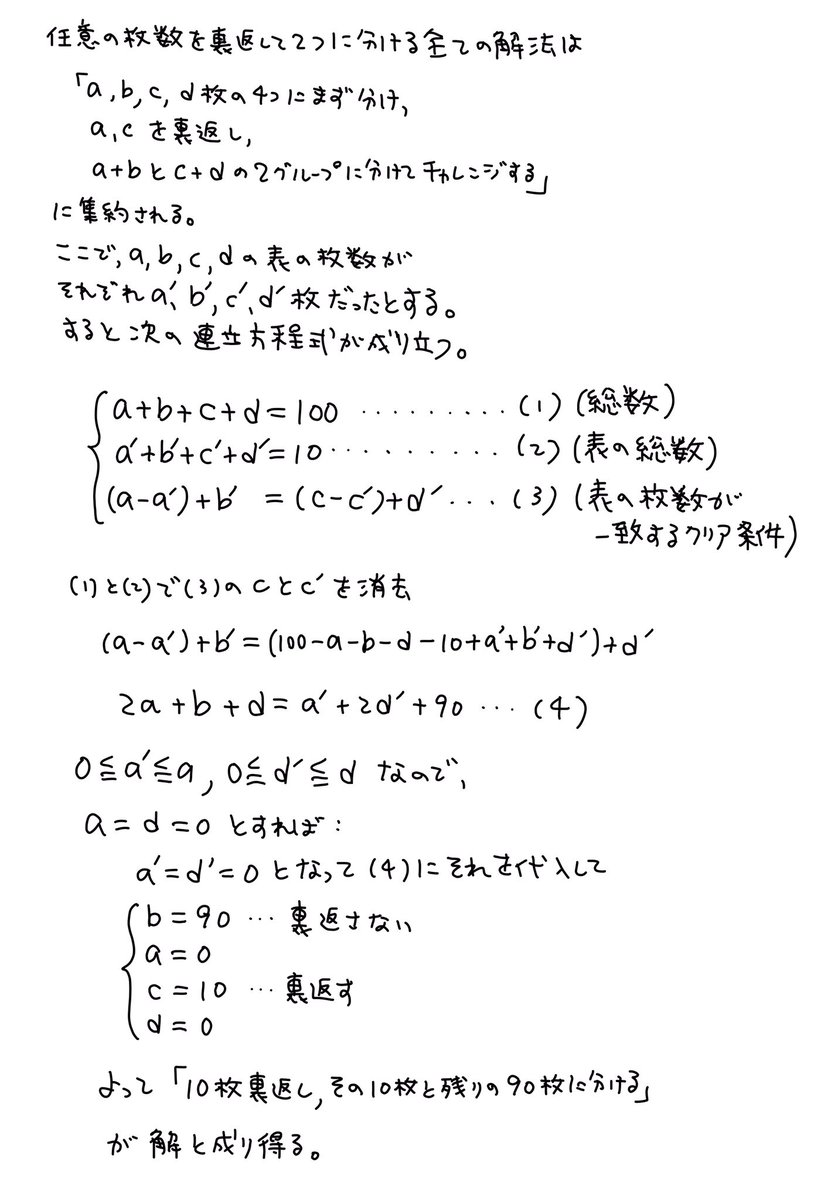 任意の枚数を裏返して2つに分ける全ての解法は
「a, b, c, d 枚の4つにまず分け,
a, c を裏返し,
a+b と c+d の2グループに分けてチャレンジする」
に集約される。
ここで, a, b, c, d の表の枚数が
それぞれ a′, b′, c′, d′ 枚だったとする。
すると次の連立方程式が成り立つ。
a+b+c+d=100 ‥‥‥‥‥ (1) (総数)
a′+b′+c′+d′=10 ‥‥‥‥‥ (2) (表の総数)
(a-a′)+b′ =(c-c′)+d′ ‥‥ (3) (表の枚数が
一致するクリア条件)
(1)と(2)で(3)のcとc′を消去
(a-a′)+b′=(100-a-b-d-10+a′+b′+d′)+d′
2a+b+d=a′+2d′+90 … (4)
0≦a′≦a, 0≦d′≦d なので,
a=d=0 とすれば:
a′=d′=0 となって(4)にそれを代入して
b=90 … 裏返さない
a=0
c=10 … 裏返す
d=0
よって「10枚裏返し, その10枚と残りの90枚に分ける」
が解と成り得る。